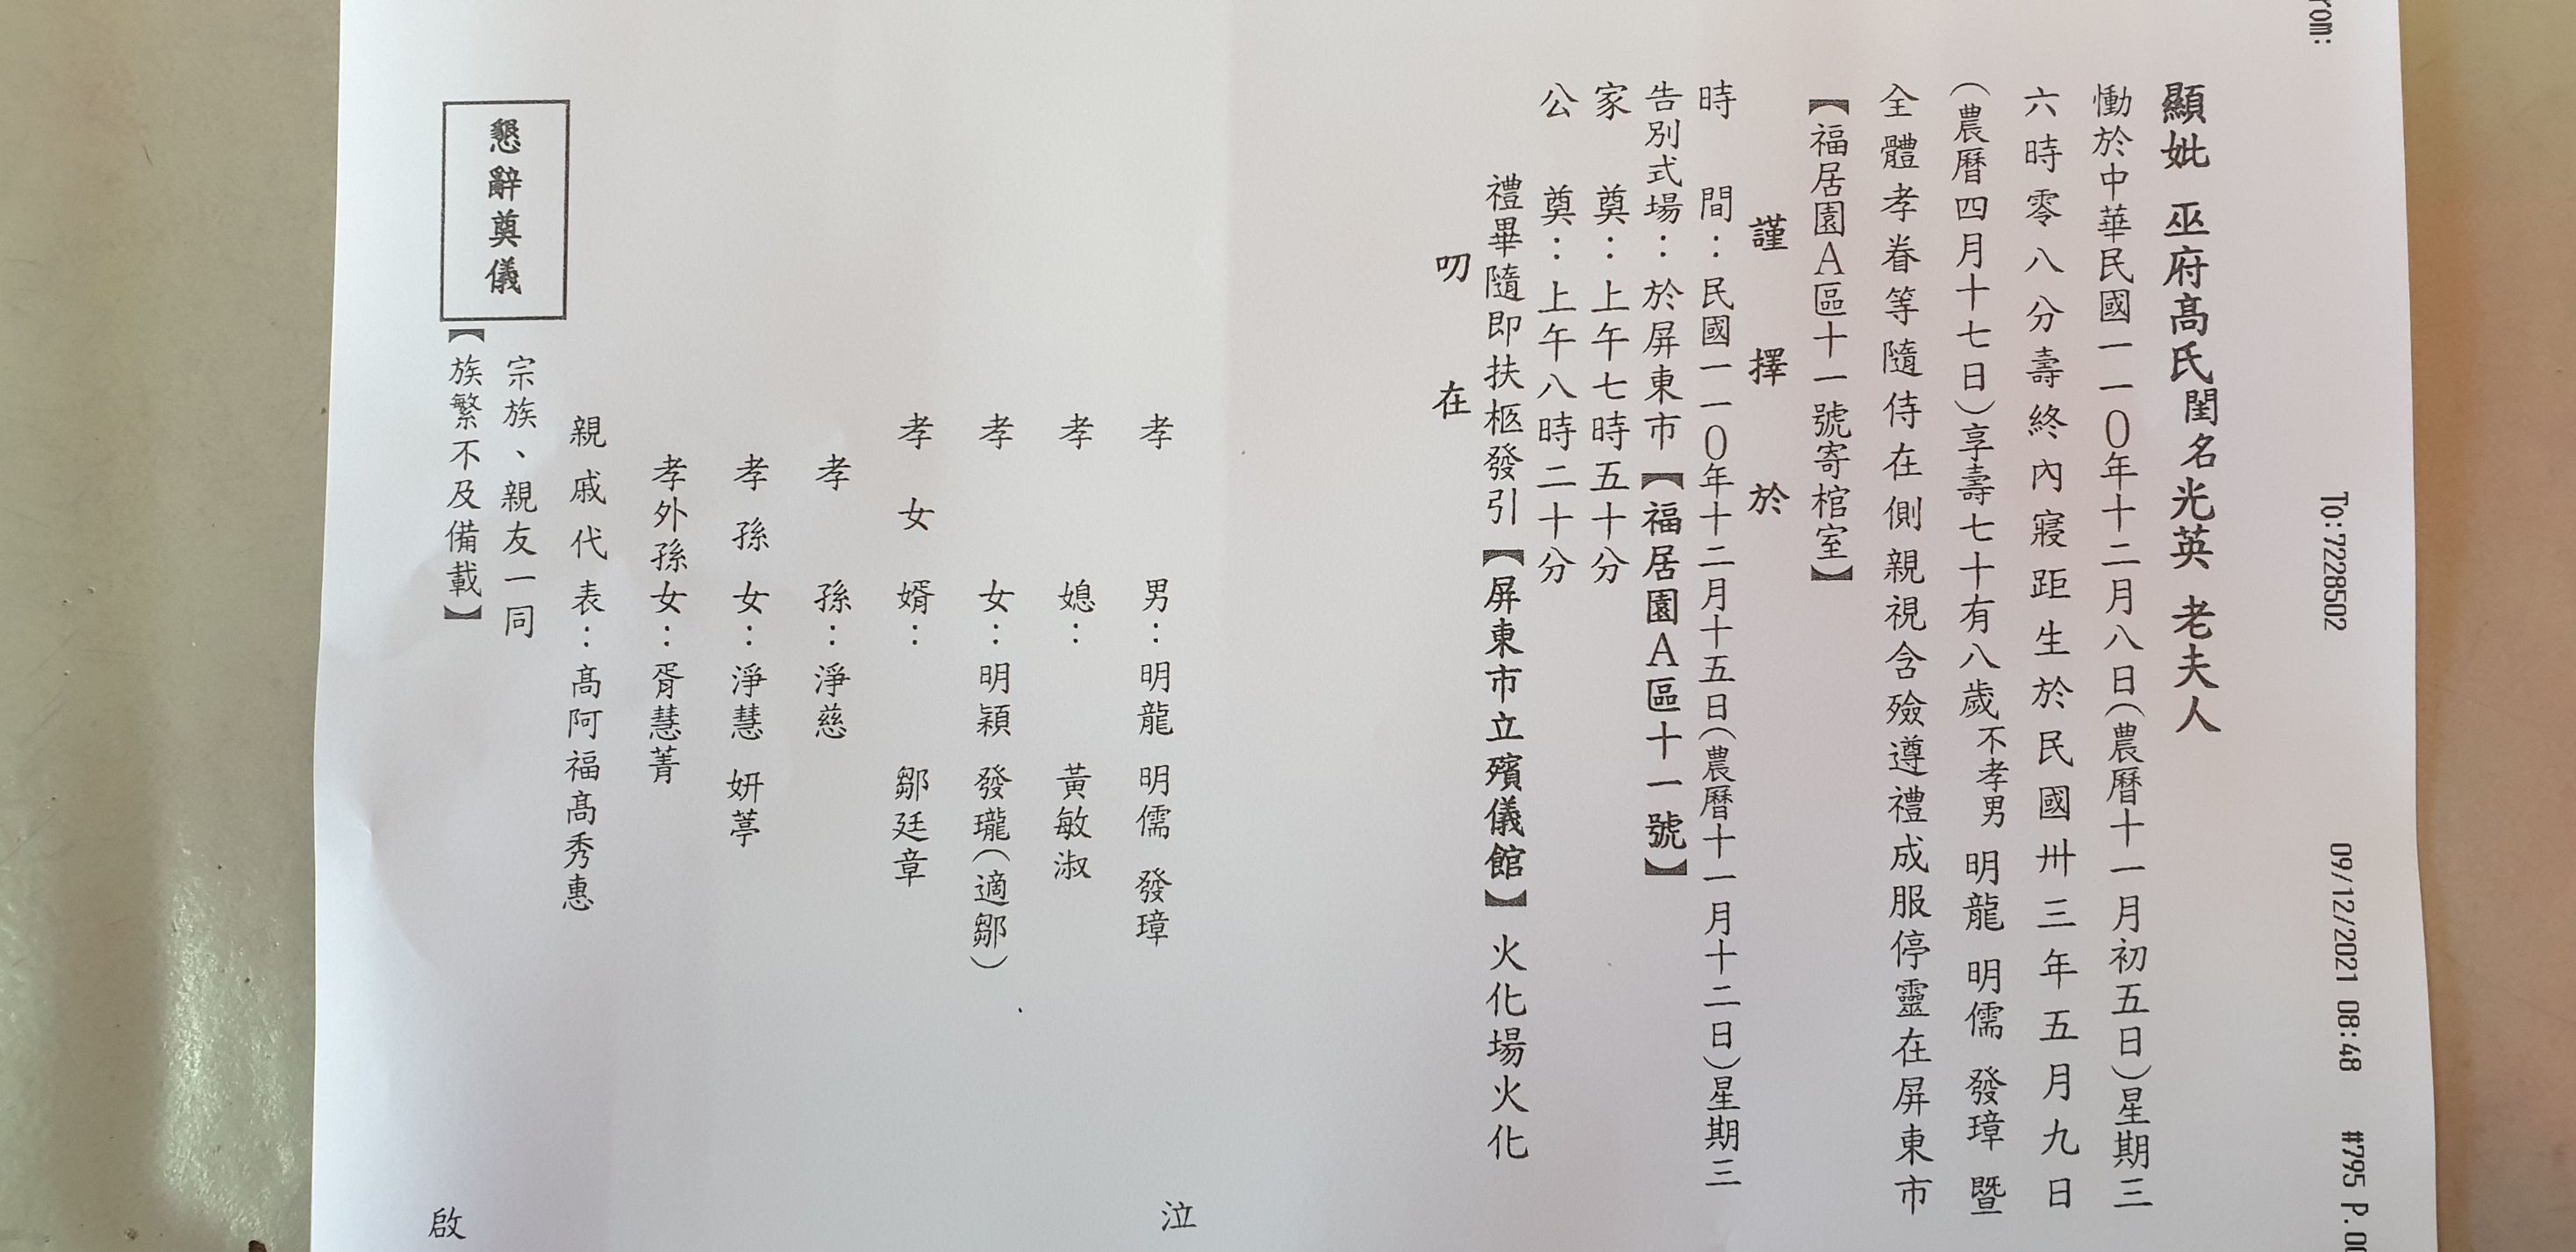 rom:
To:7228502
09/12/2021 08:48
#795 P.00
顯妣 巫府髙氏閨名光英 老夫人
慟於中華民國一一0年十二月八日(農曆十一月初五日)星期三
六時零八分壽終內寢距生於民國卅三年五月九日
(農曆四月十七日)享壽七十有八歲不孝男 明龍 明儒 發璋 暨
全體孝眷等隨侍在側親視含殮遵禮成服停靈在屏東市
【福居園A區十一號寄棺室】
謹擇於
時間:民國一一0年十二月十五日(農曆十一月十二日)星期三
告別式場:於屏東市【福居園A區十一號】
家奠:上午七時五十分
公奠:上午八時二十分
禮畢隨即扶柩發引【屏東市立殯儀館】火化場火化
叨在
孝男:明龍 明儒 發璋
孝媳: 黃敏淑
孝女:明穎 發瓏(適鄒)
孝女婿: 鄒廷章
孝孫:淨慈
孝孫女:淨慧 妍葶
孝外孫女:胥慧菁
親戚代表:髙阿福髙秀惠
宗族、親友一同
【族繁不及備載】
懇辭奠儀
泣
啟